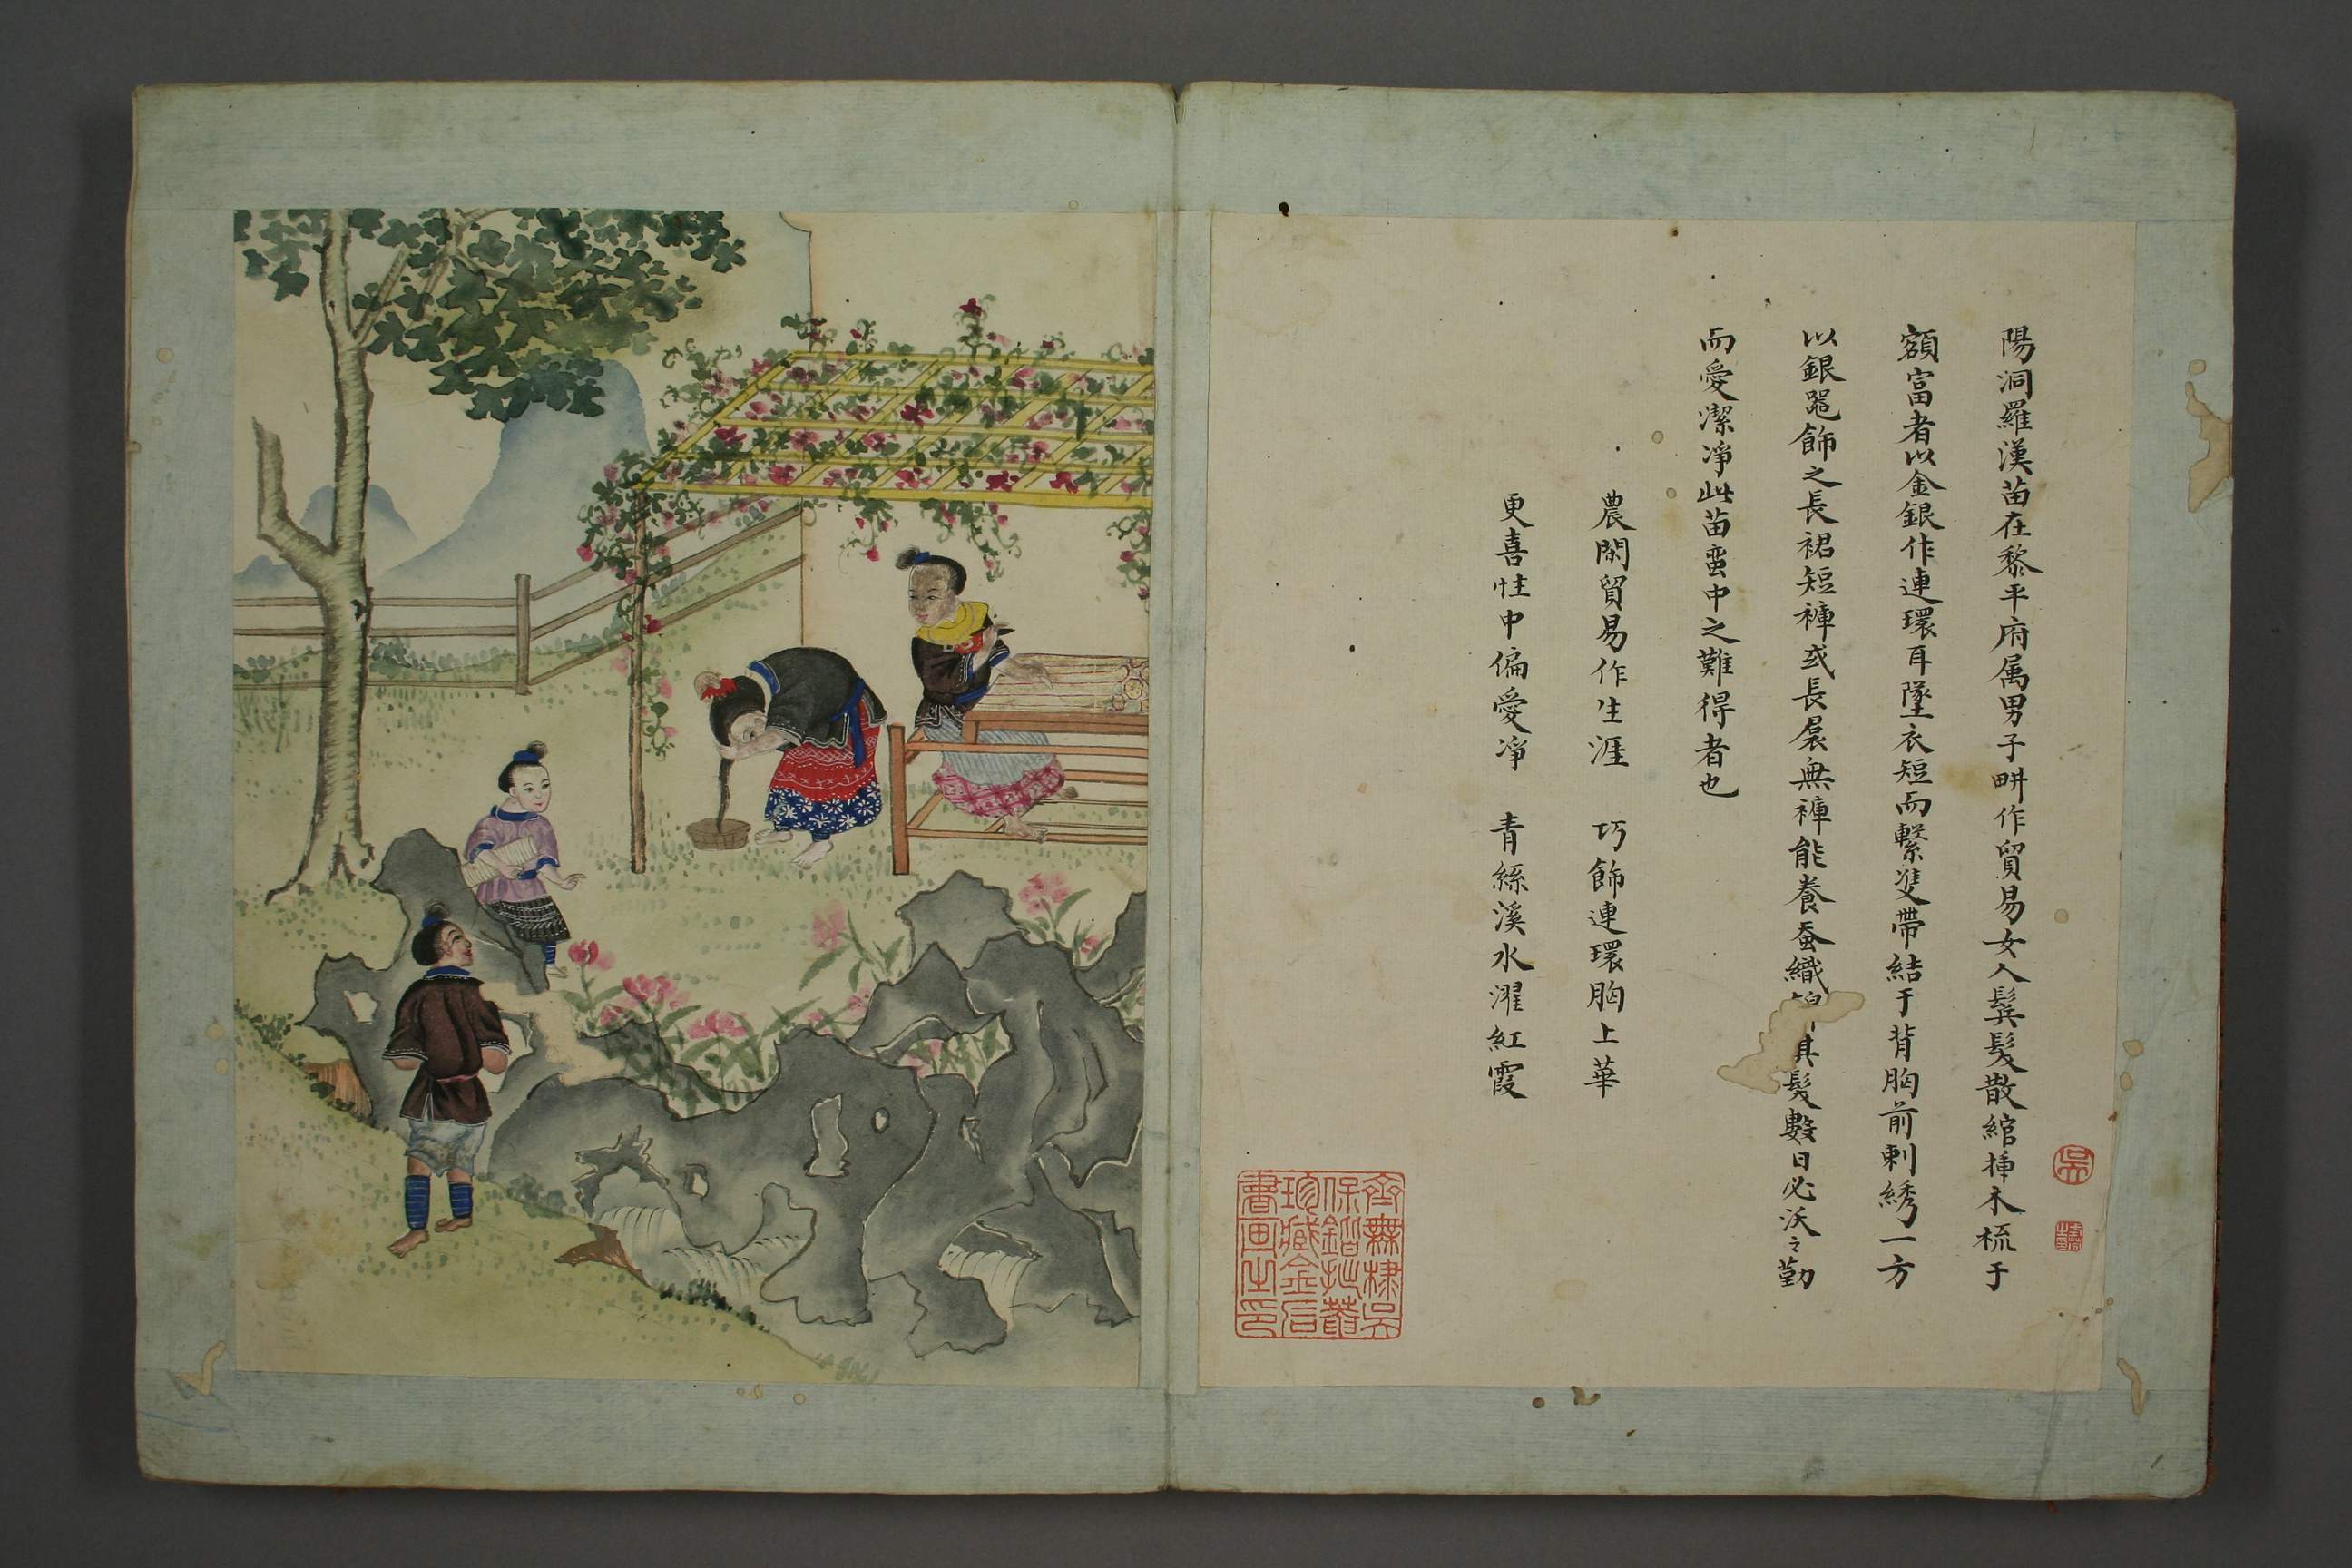 陽洞羅漢苗在黎平府属男子畊作貿易女人鬓髮散綰挿木梳于
額富者以金銀作連環耳墜衣短而繫雙帶結于背胸前刺綉一方
以銀噐飾之長裙短褲或長裠無褲能養蚕織其髮數日必沃之勤
而愛潔凈此苗蛮中之難得者也
農閑貿易作生涯 巧飾連環胸上華
更喜性中偏愛凈 青絲溪水濯紅霞
吳
齊無棣吳
保鍇批讀
珍藏金石
書画之印